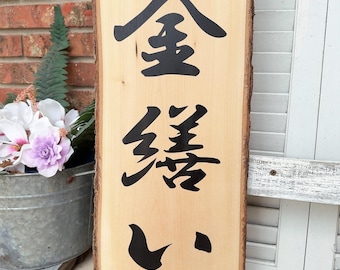 金繕い